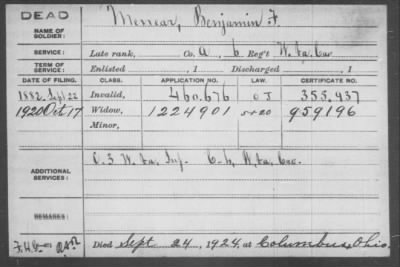 DEAD
NAME OF SOLDIER: Merrear, Benjamin F.
SERVICE: Late rank, Co. A, 6 Reg't W. Va. Cav
TERM OF SERVICE: Enlisted , 1 Discharged , 1
DATE OF FILING. CLASS. APPLICATION NO. LAW. CERTIFICATE NO.
1882 Sept 22 Invalid, 460,676 G J 353,437
1920 Oct 17 Widow, 1224901 5+20 959196
Minor,
ADDITIONAL SERVICES: C. 3 W. Va. Inf. W. Va. Cav.
REMARKS:
Died Sept. 24, 1924, at Columbus, Ohio.